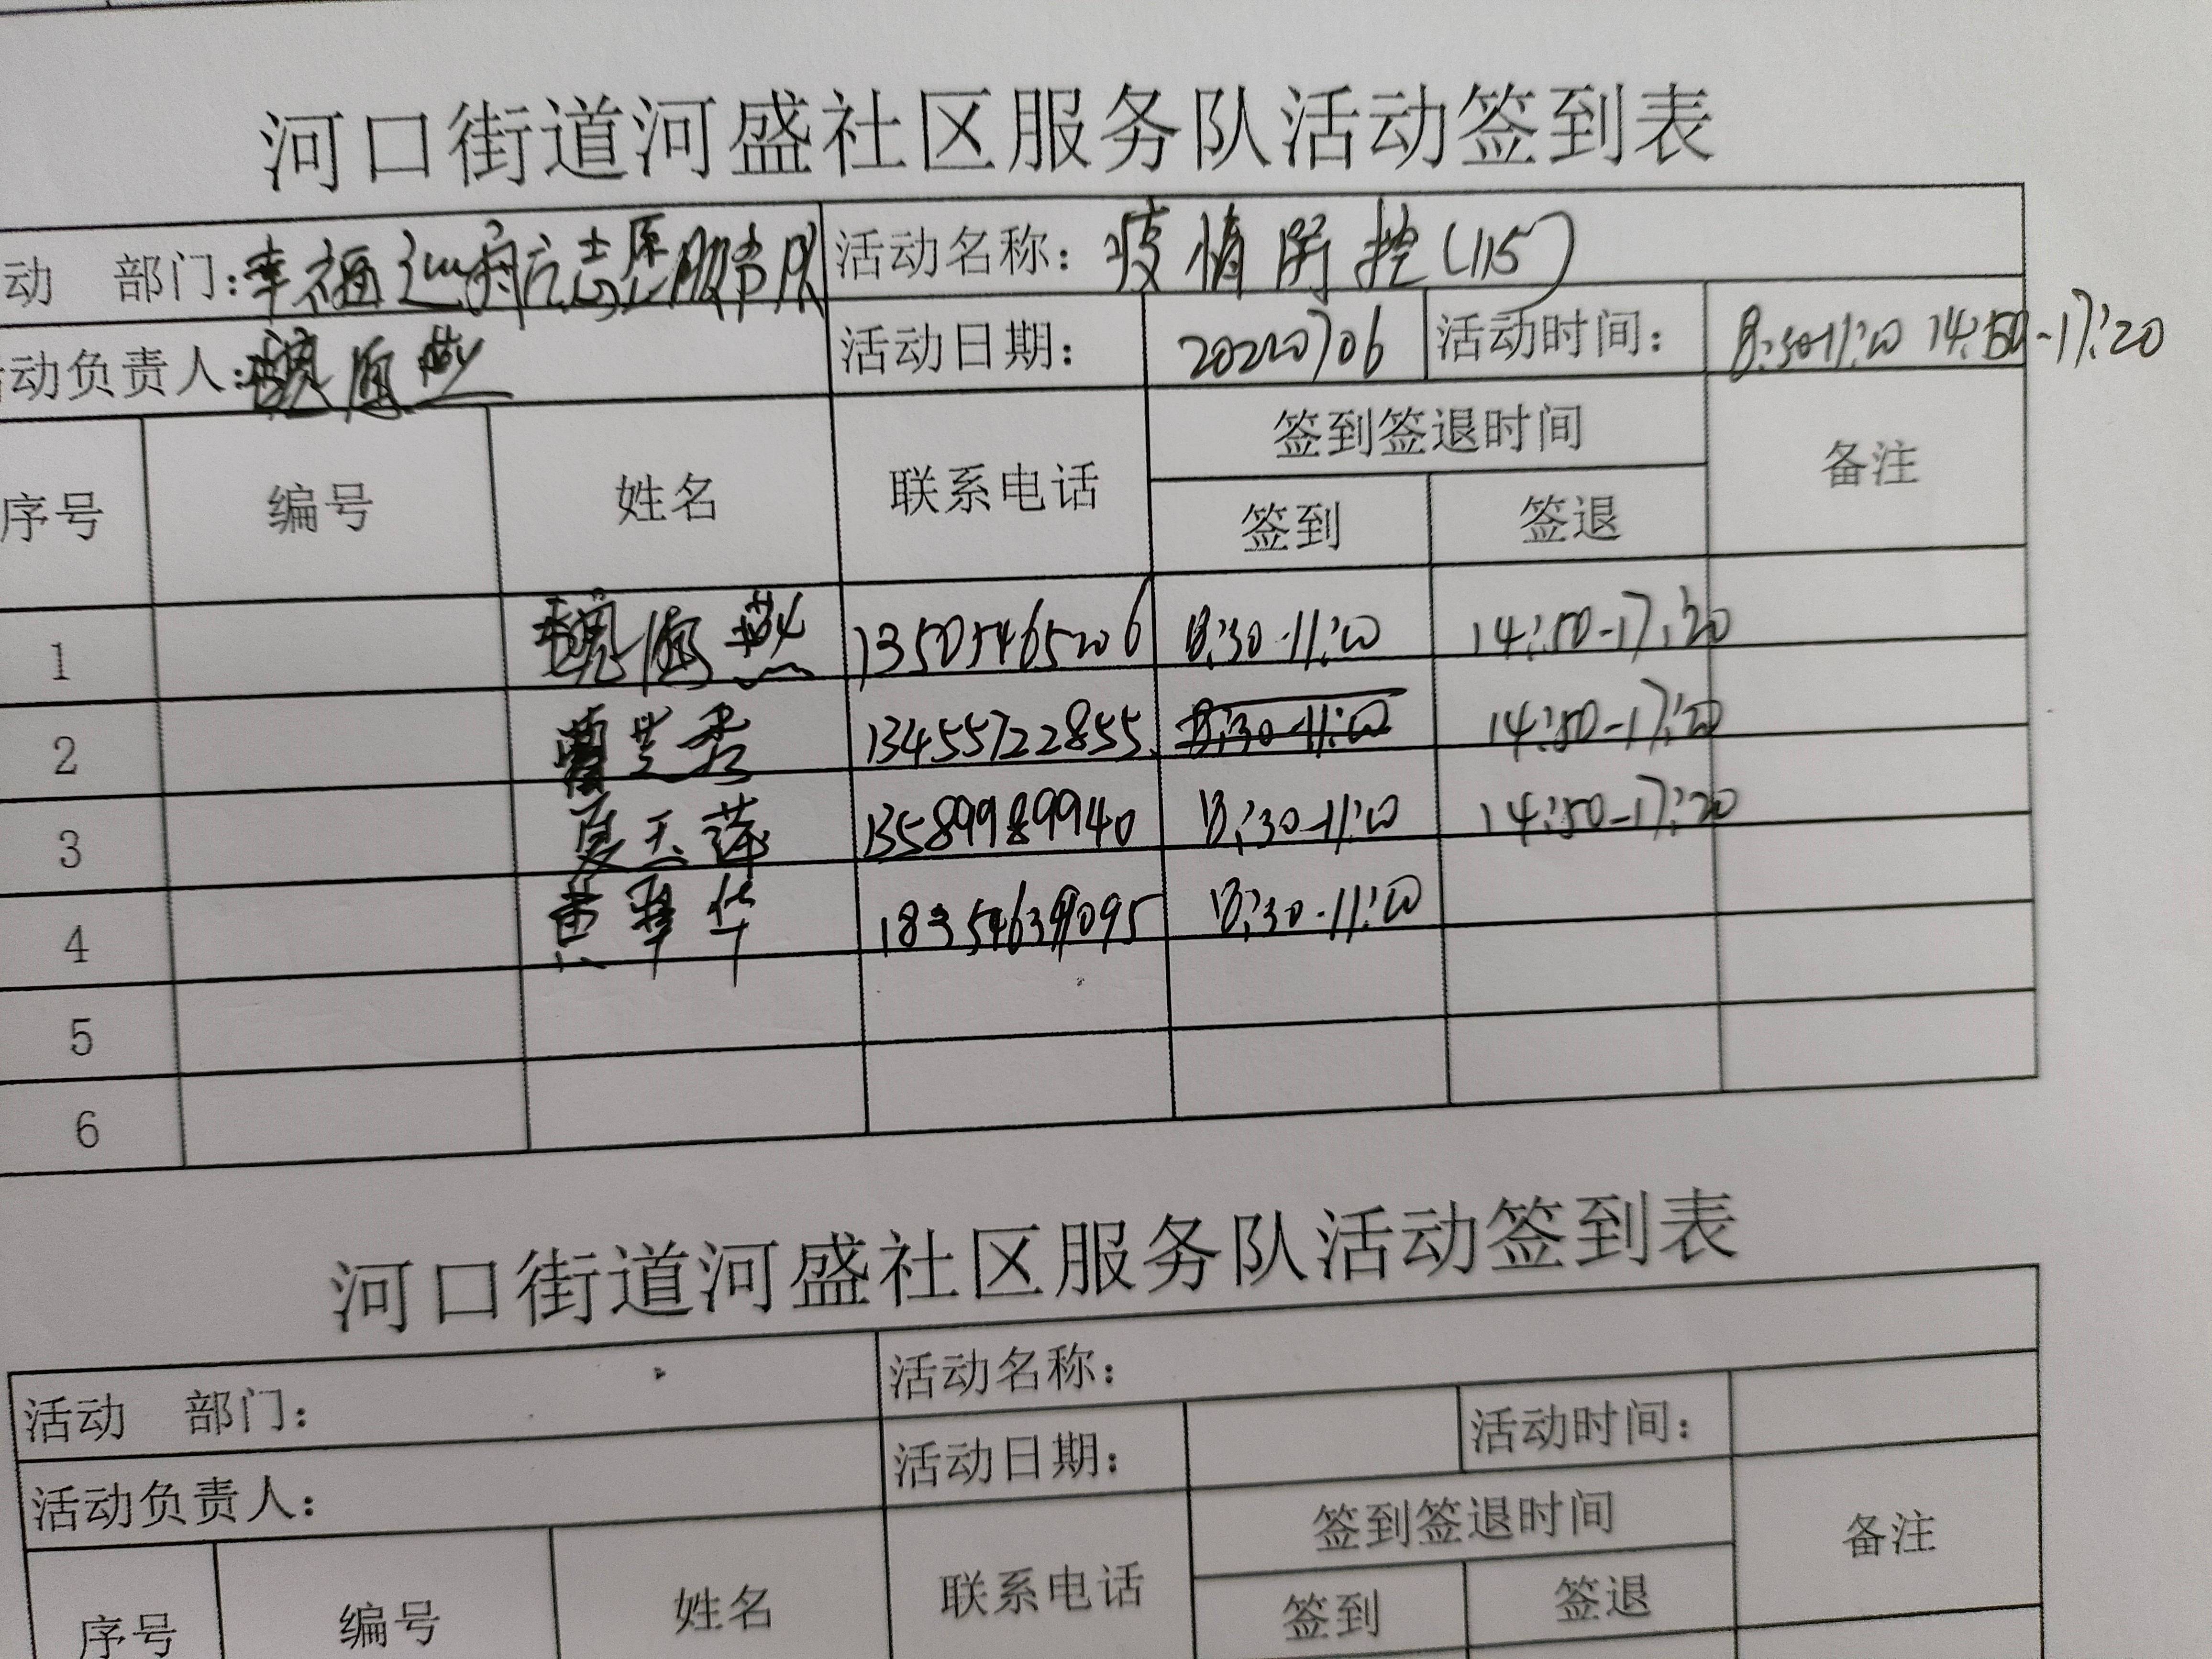 河口街道河盛社区服务队活动签到表
动 部门:幸福巡河志愿服务队 活动名称:疫情防控(115)
动负责人:魏海燕 活动日期: 20220706 活动时间: 8:30-11:20 14:50-17:20
序号 编号 姓名 联系电话 签到签退时间 备注
签到 签退
1 魏海燕 13505465206 8:30-11:20 14:50-17:20
2 曹兰秀 13455722855 8:30-11:20 14:50-17:20
3 夏玉萍 13589989940 8:30-11:20 14:50-17:20
4 华 8:30-11:20
5
6
河口街道河盛社区服务队活动签到表
活动 部门: 活动名称:
活动负责人: 活动日期: 活动时间:
序号 编号 姓名 联系电话 签到签退时间 备注
签到 签退